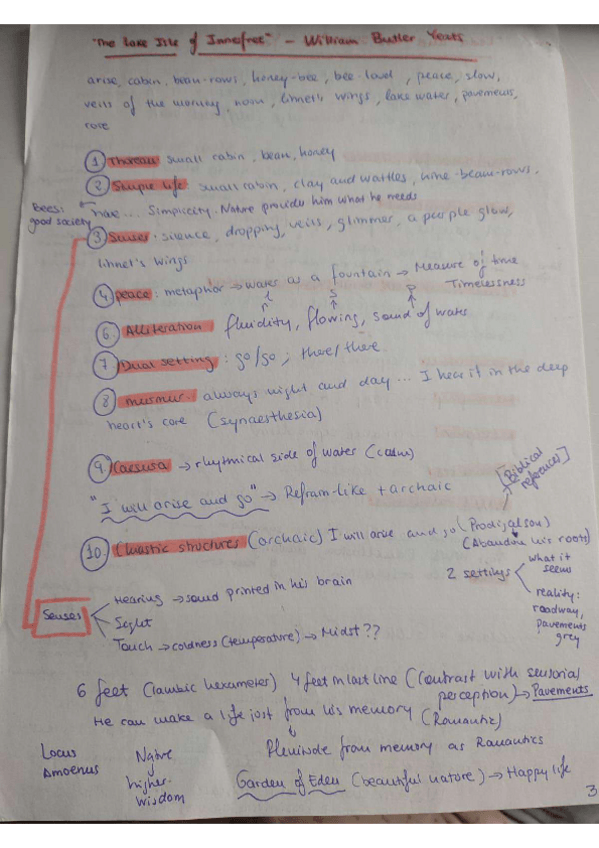 "The Lake Isle of Innesfree" – William Butler Yeats
arise, cabin, bean-rows, honey-bee, bee-loud, peace, slow,
veils of the morning, noon, linnet's wings, lake water, pavements,
core
1 Thoreau small cabin, bean, honey
2 Simple life: small cabin, clay and wattles, nine-bean-rows,
hive... Simplicity. Nature provides him what he needs
Bees:
good society
3 Senses: silence, dropping, veils, glimmer, a purple glow,
linnet's wings
4 peace: metaphor → water as a fountain → Measure of time
Timelessness
6. Alliteration fluidity, flowing, sound of water
7. Dual setting: go/go; there/there
8 murmur: always night and day... I hear it in the deep
heart's core (synaesthesia)
9. → rhytmical side of water (calm)
[Biblical
references]
"I will arise and go" → Refrain-like + archaic
10. Chiastic structures (archaic) I will arise and go (Prodigal son)
(Abandon his roots)
2 settings
what it
seems
reality:
roadway,
pavements
grey
Senses
Hearing → sound printed in his brain
Sight
Touch → coldness (temperature) → Midst??
6 feet (Iambic hexameter) 4 feet in last line (contrast with sensorial
perception) → Pavements
He can make a life just from his memory (Romantic)
from memory as Romantics
Locus
Amoenus
Native
higher
wisdom
Garden of Eden (beautiful nature) → Happy life
3